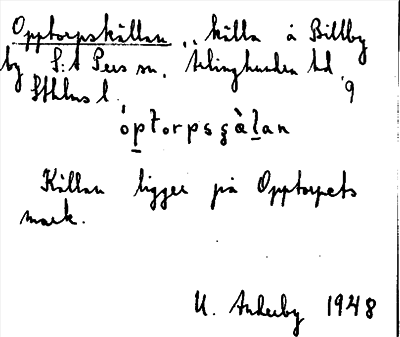 Opptorpskällan, källa å Billby
by S:t Pers sn, hd
Sthlms l. 9
óp̲torpsgàl̲an
Källan ligger på Opptorpets
mark.
U. Ankerby 1948